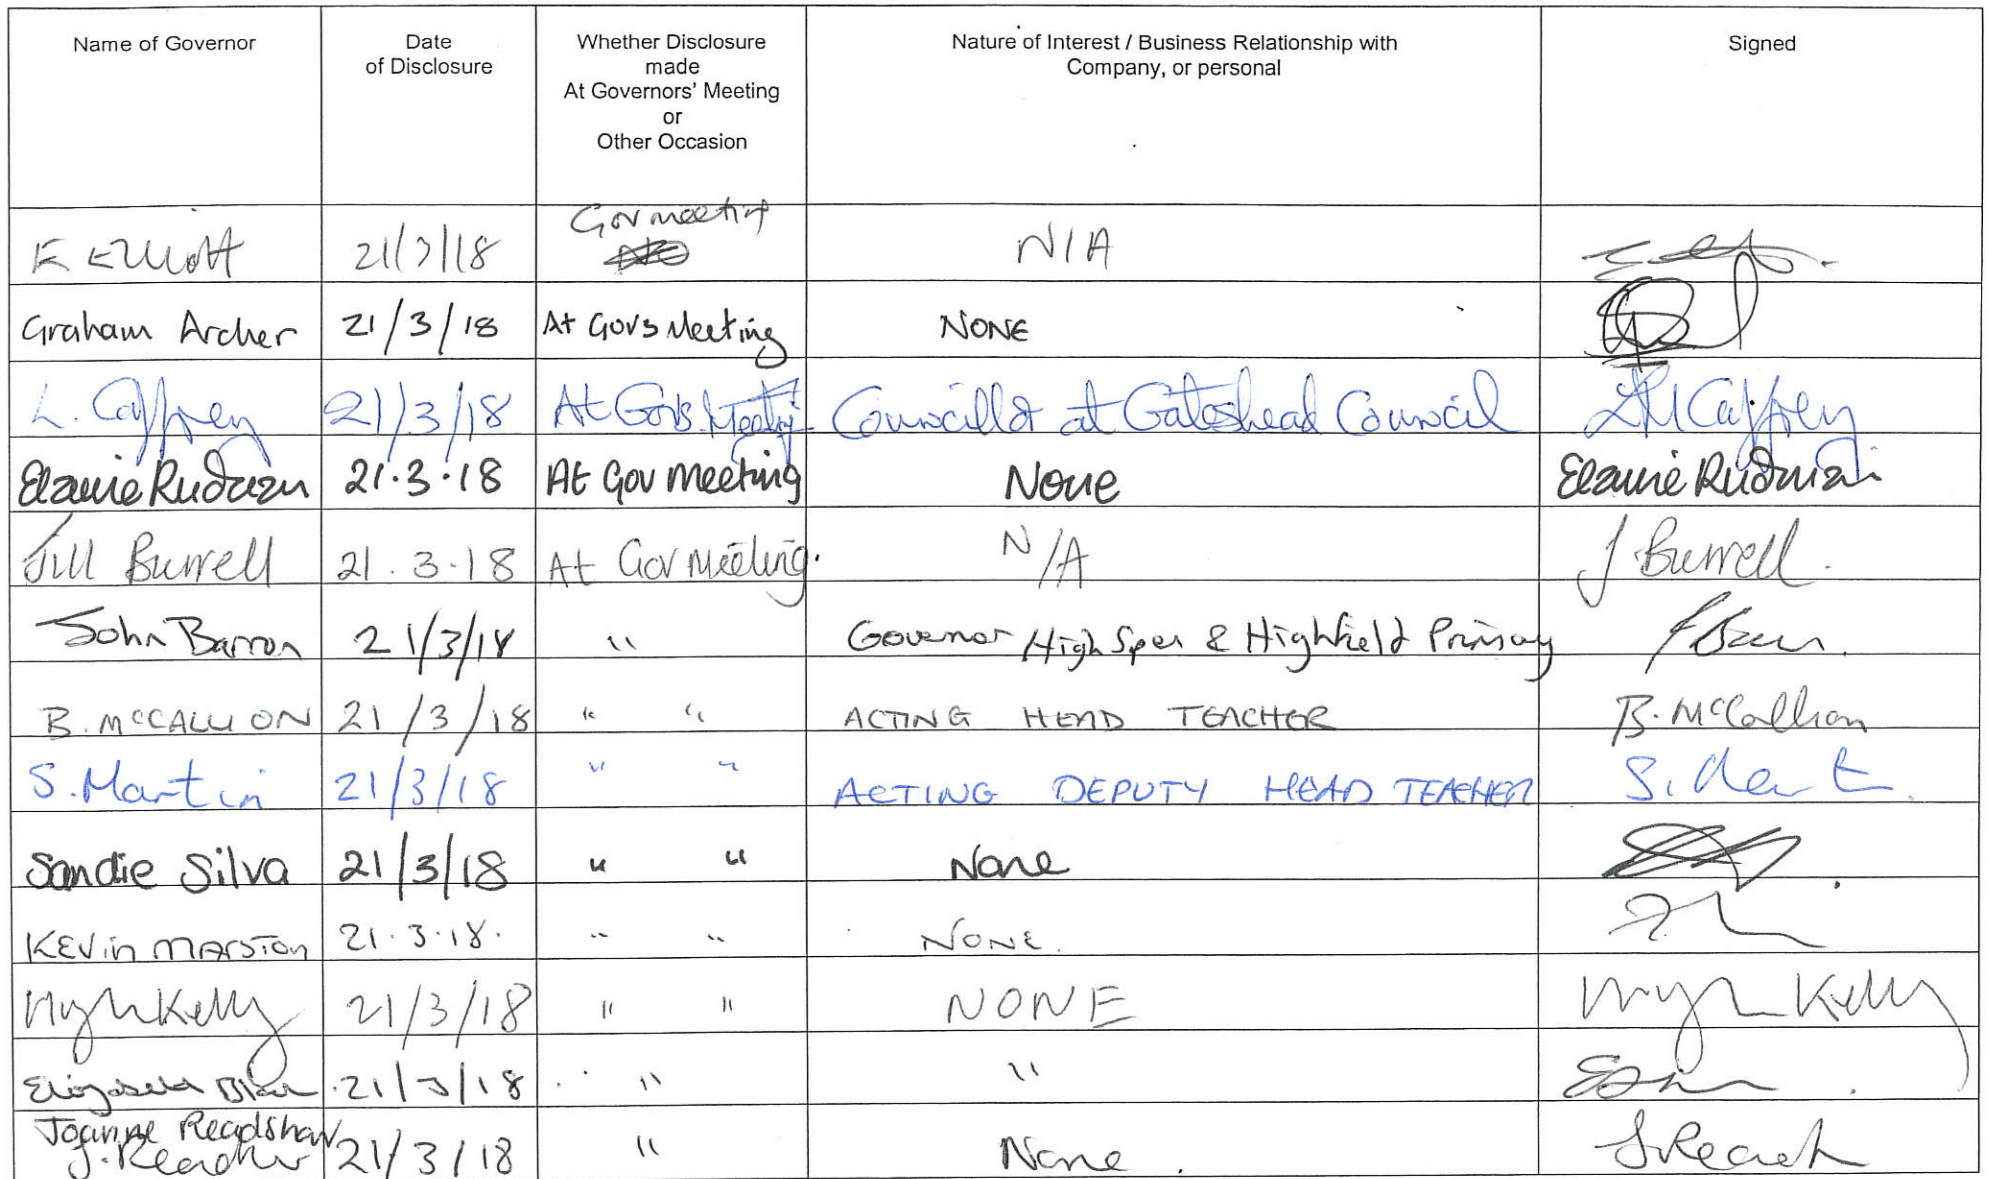 Name of Governor
Date
of Disclosure
Whether Disclosure
made
At Governors' Meeting
or
Other Occasion
Nature of Interest / Business Relationship with
Company, or personal
Signed
E Elliott 21/3/18 Gov meeting N/A
Graham Archer 21/3/18 At Govs Meeting NONE
L. Caffrey 21/3/18 At Govs. Meeting Councillor at Gateshead Council LM Caffrey
Elaine Rudman 21.3.18 At Gov meeting None Elaine Rudman
Jill Burrell 21.3.18 At Gov Meeting. N/A J. Burrell.
John Barron 21/3/18 " Governor High Spen & Highfield Primary
B. McCALLION 21/3/18 " " ACTING HEAD TEACHER B. McCallion
S. Martin 21/3/18 " " ACTING DEPUTY HEAD TEACHER S. Mart
Sandie Silva 21/3/18 " " None
KEVin MARSTON 21.3.18. " " NONE.
Kelly 21/3/18 " " NONE Kelly
Elizabeth Blair 21/3/18 " "
Joanne Readshaw
J. Readshaw 21/3/18 " None